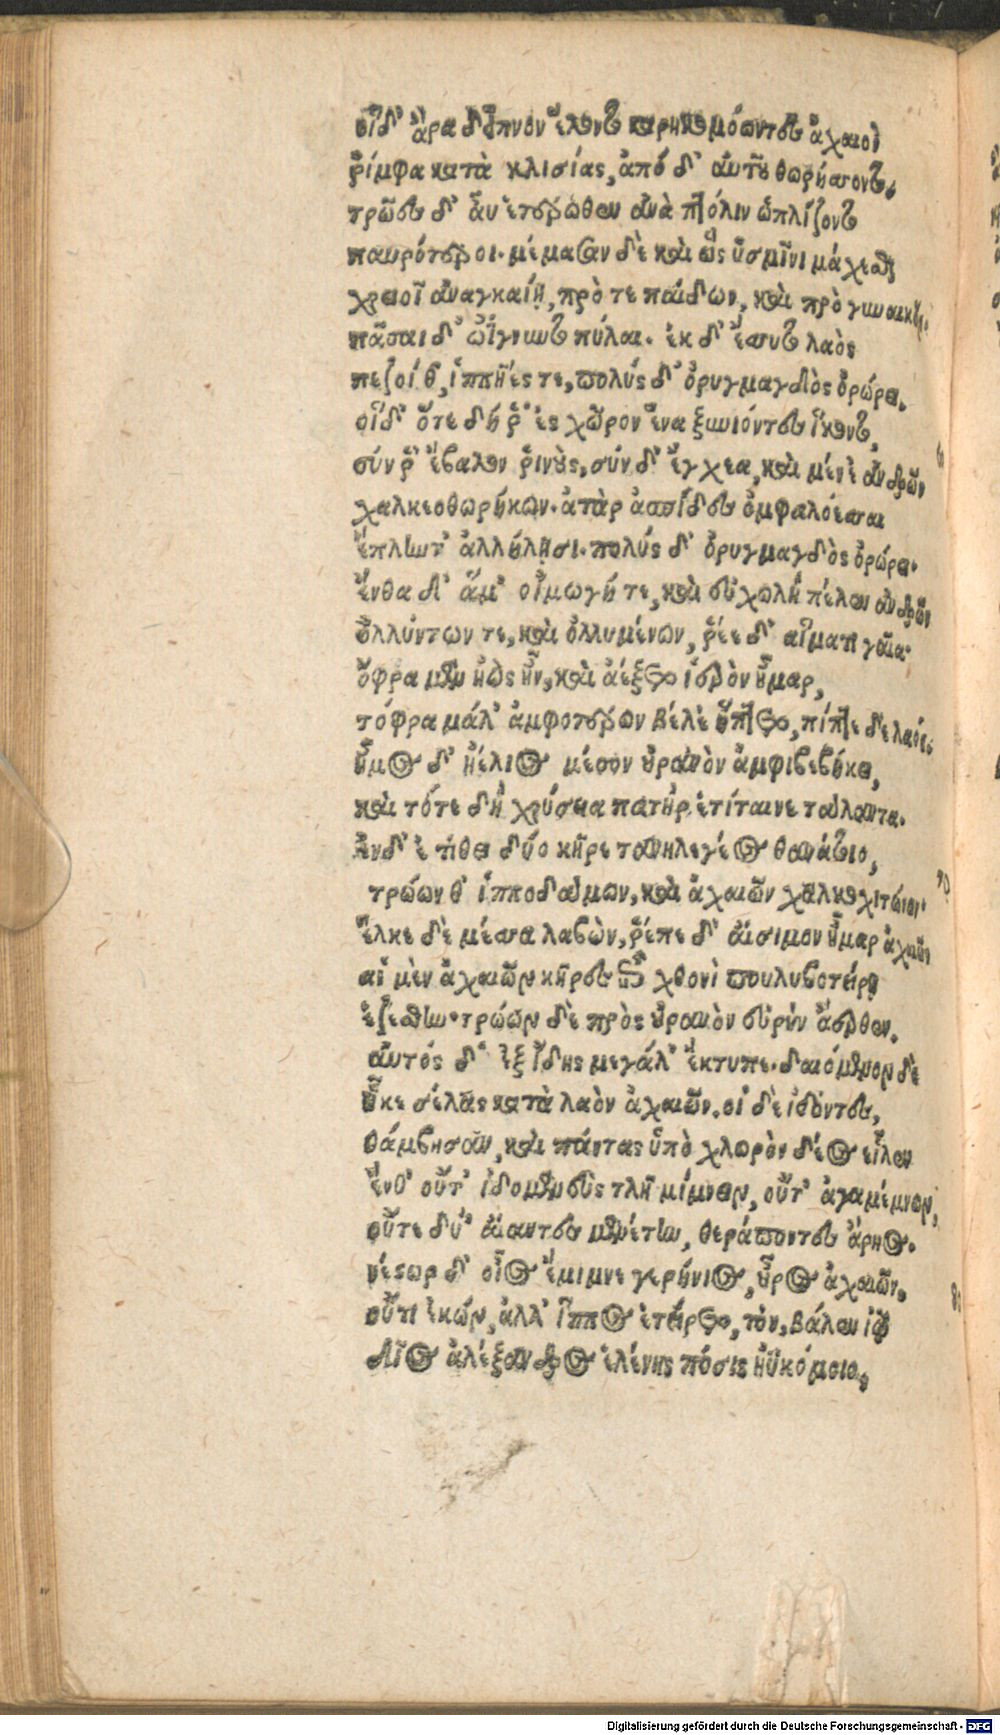 οἱ δ' ἄρα δεῖπνον ἕλοντο καρηκομόωντες ἀχαιοὶ
ῥίμφα κατὰ κλισίας, ἀπὸ δ' αὐτοῦ θωρήσσοντο,
τρῶες δ' αὖ ἑτέρωθεν ἀνὰ πτόλιν ὡπλίζοντο
παυρότεροι. μέμασαν δὲ καὶ ὣς ὑσμῖνι μάχεσθαι
χρειοῖ ἀναγκαίῃ, πρό τε παίδων, καὶ πρὸ γυναικῶν.
πᾶσαι δ' ὠΐγνυντο πύλαι. ἐκ δ' ἔσσυτο λαὸς
πεζοί θ', ἱππῆές τε, πολὺς δ' ὀρυγμαγδὸς ὀρώρει.
οἱ δ' ὅτε δή ῥ' ἐς χῶρον ἕνα ξυνιόντες ἵκοντο,
σύν ῥ' ἔβαλον ῥινούς, σύν δ' ἔγχεα, καὶ μένε' ἀνδρῶν
χαλκεοθωρήκων. ἀτὰρ ἀσπίδες ὀμφαλόεσσαι
ἔπληντ' ἀλλήλῃσι. πολὺς δ' ὀρυγμαγδὸς ὀρώρει.
ἔνθα δ' ἅμ' οἰμωγή τε, καὶ εὐχωλὴ πέλεν ἀνδρῶν
ὀλλύντων τε, καὶ ὀλλυμένων, ῥέε δ' αἵματι γαῖα.
ὄφρα μὲν ἠὼς ἦν, καὶ ἀέξετο ἱερὸν ἦμαρ,
τόφρα μάλ' ἀμφοτέρων βέλε' ἥπτετο, πίπτε δὲ λαός.
ἦμος δ' ἠέλιος μέσον οὐρανὸν ἀμφιβεβήκει,
καὶ τότε δὴ χρύσεια πατὴρ ἐτίταινε τάλαντα.
ἐν δ' ἐτίθει δύο κῆρε τανηλεγέος θανάτοιο,
τρώων θ' ἱπποδάμων, καὶ ἀχαιῶν χαλκοχιτώνων.
ἕλκε δὲ μέσσα λαβὼν, ῥέπε δ' αἴσιμον ἦμαρ ἀχαιῶν
αἱ μὲν ἀχαιῶν κῆρες ἐπὶ χθονὶ πουλυβοτείρῃ
ἑζέσθην. τρώων δὲ πρὸς οὐρανὸν εὐρὺν ἄερθεν.
αὐτὸς δ' ἐξ ἴδης μεγάλ' ἔκτυπε. δαιόμενον δὲ
ἧκε σέλας κατὰ λαὸν ἀχαιῶν. οἱ δὲ ἰδόντες,
θάμβησαν, καὶ πάντας ὑπὸ χλωρὸν δέος εἷλεν
ἔνθ' οὔτ' ἰδομενεὺς τλῆ μίμνειν, οὔτ' ἀγαμέμνων,
οὔτε δύ' αἴαντες μενέτην, θεράποντες ἄρηος.
νέστωρ δ' οἶος ἔμιμνε γερήνιος, οὖρος ἀχαιῶν.
οὔτι ἑκών, ἀλλ' ἵππος ἐτείρετο, τὸν, βάλεν ἰῷ
δῖος ἀλέξανδρος ἑλένης πόσις ἠϋκόμοιο,
Digitalisierung gefördert durch die Deutsche Forschungsgemeinschaft - DFG